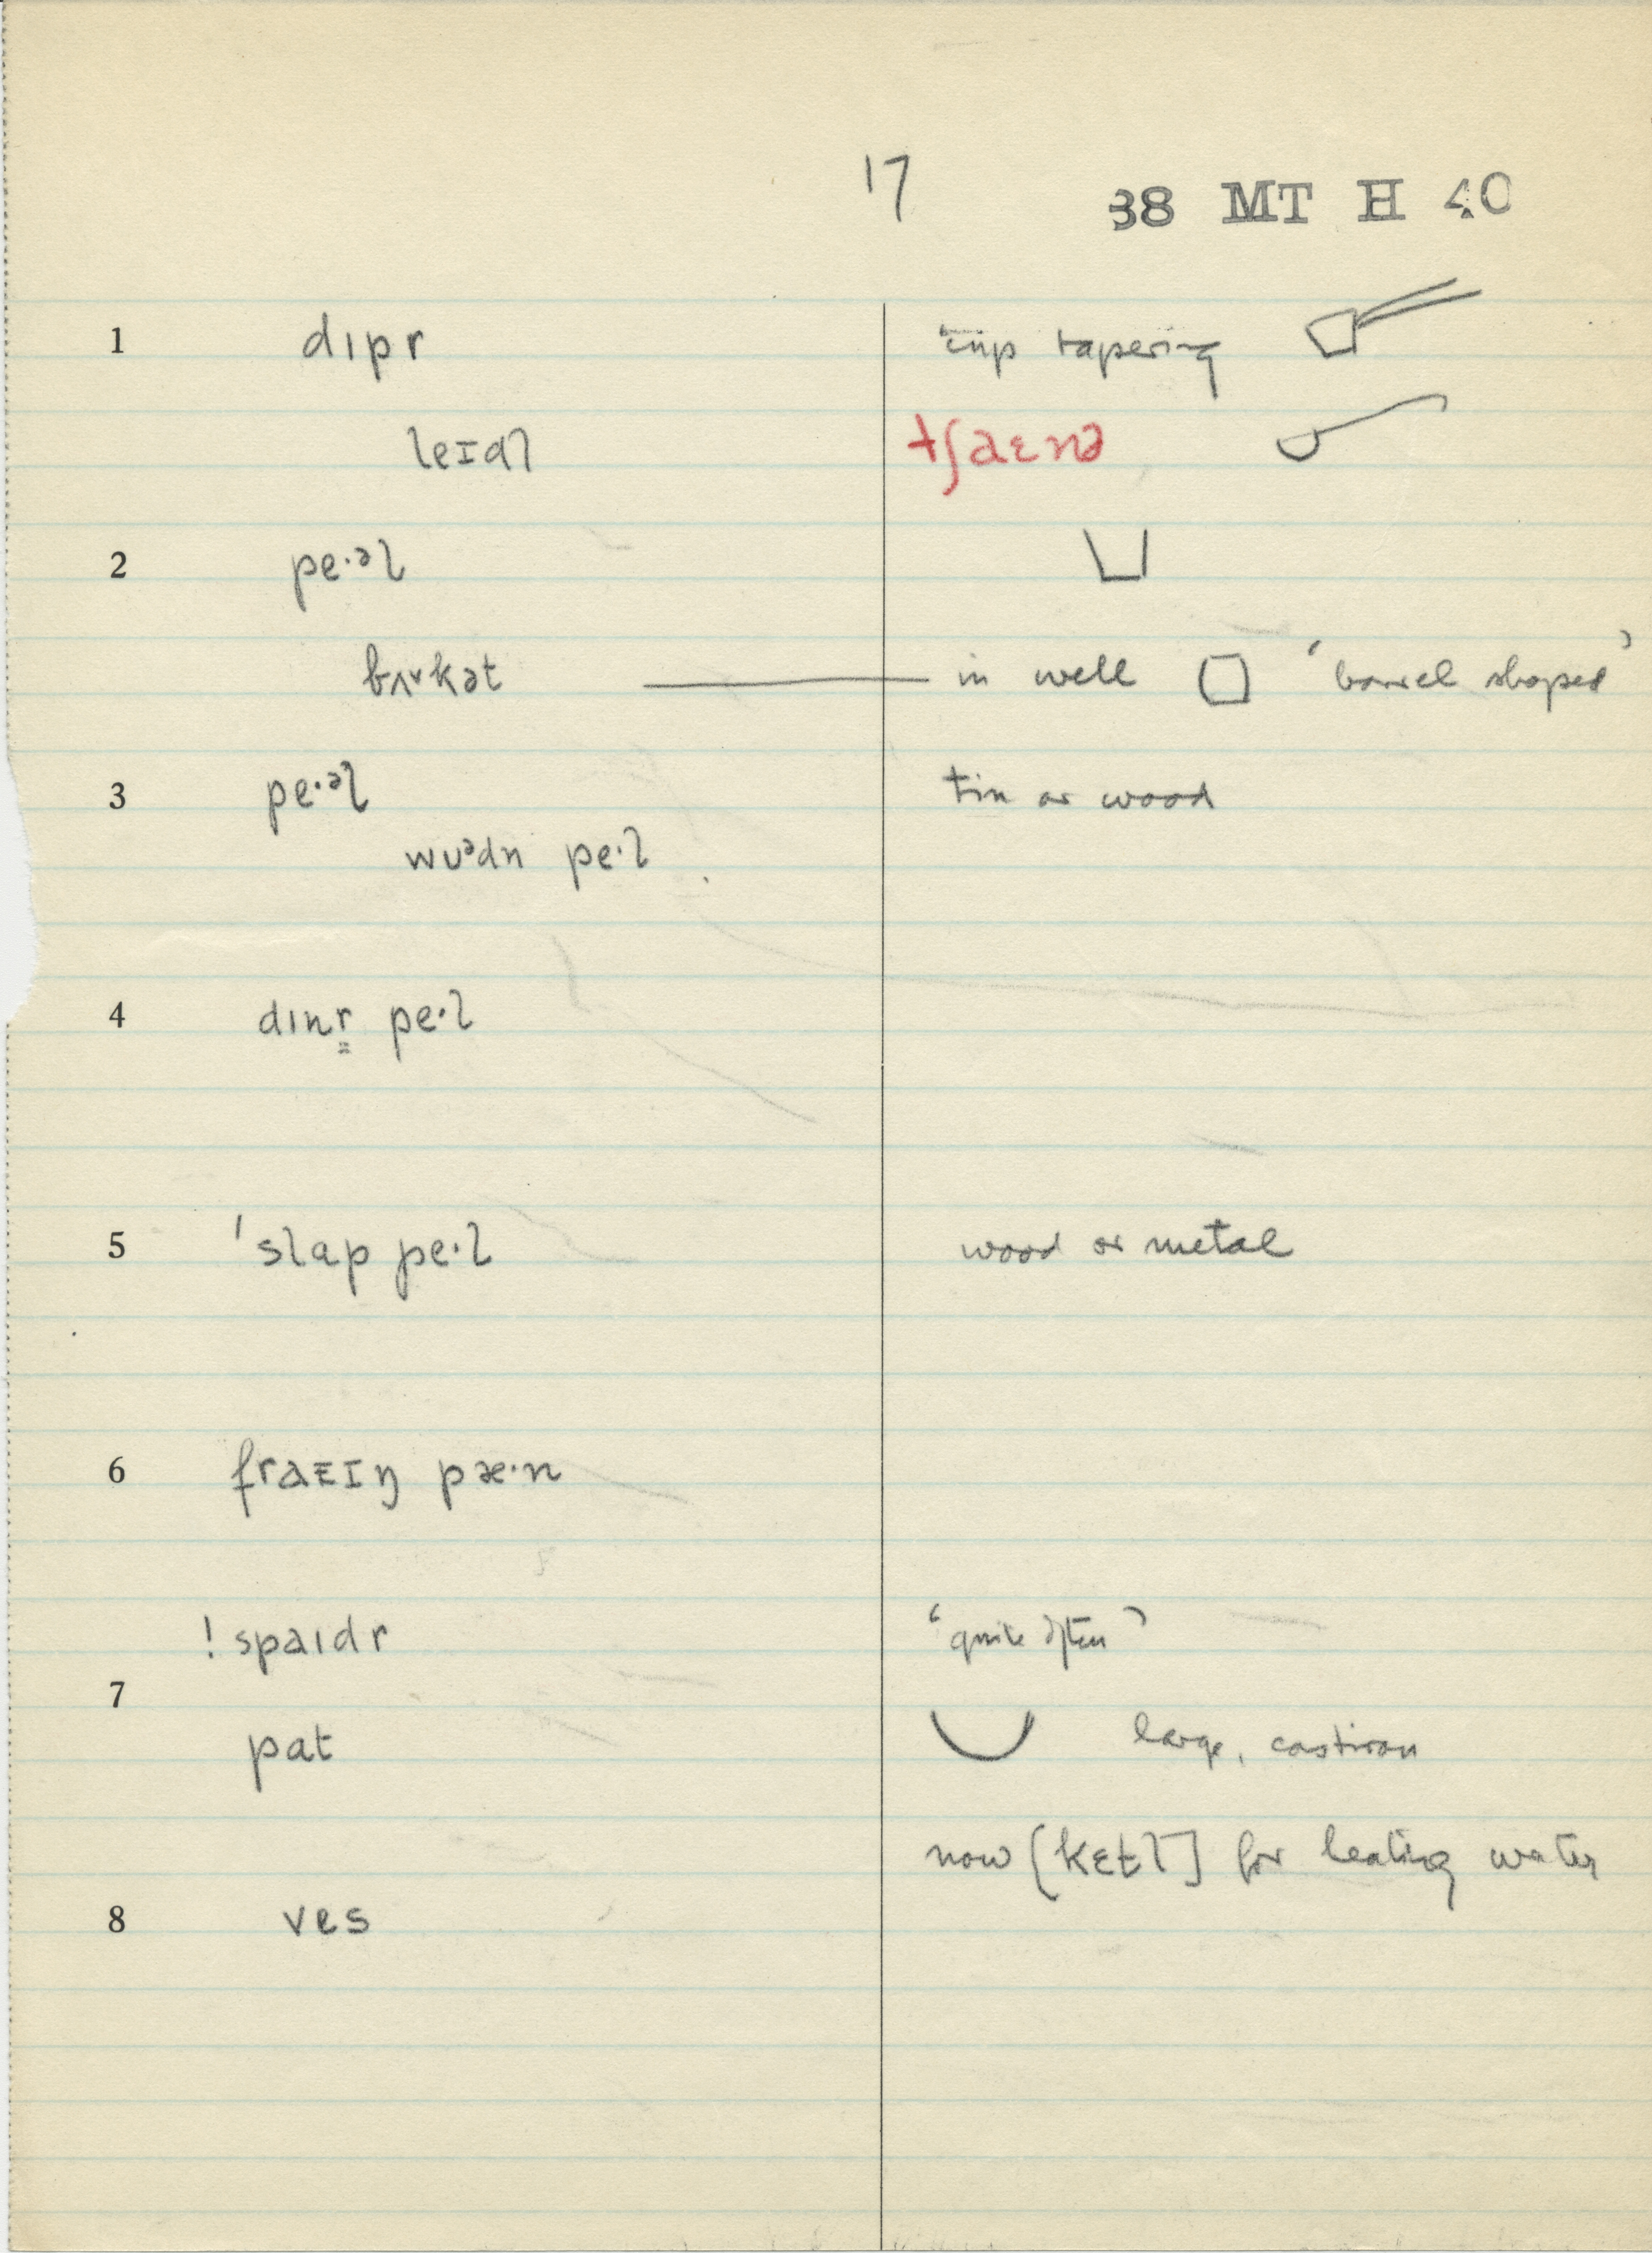 17 38 MT H 40
1 dɪpr tin tapering
leɪdl tʃaɛnə
2 pe·əl
bʌ˅kət in well ‘barrel shaped’
3 pe·əl tin or wood
wʊədn pe·l
4 dɪnr̳ pe·l
5 ˈslap pe·l wood or metal
6 fraɛɪŋ pæ·n
! spaɪdr ‘quite often’
7
pat large, castiron
now [kɛt̬l] for heating water
8 ves